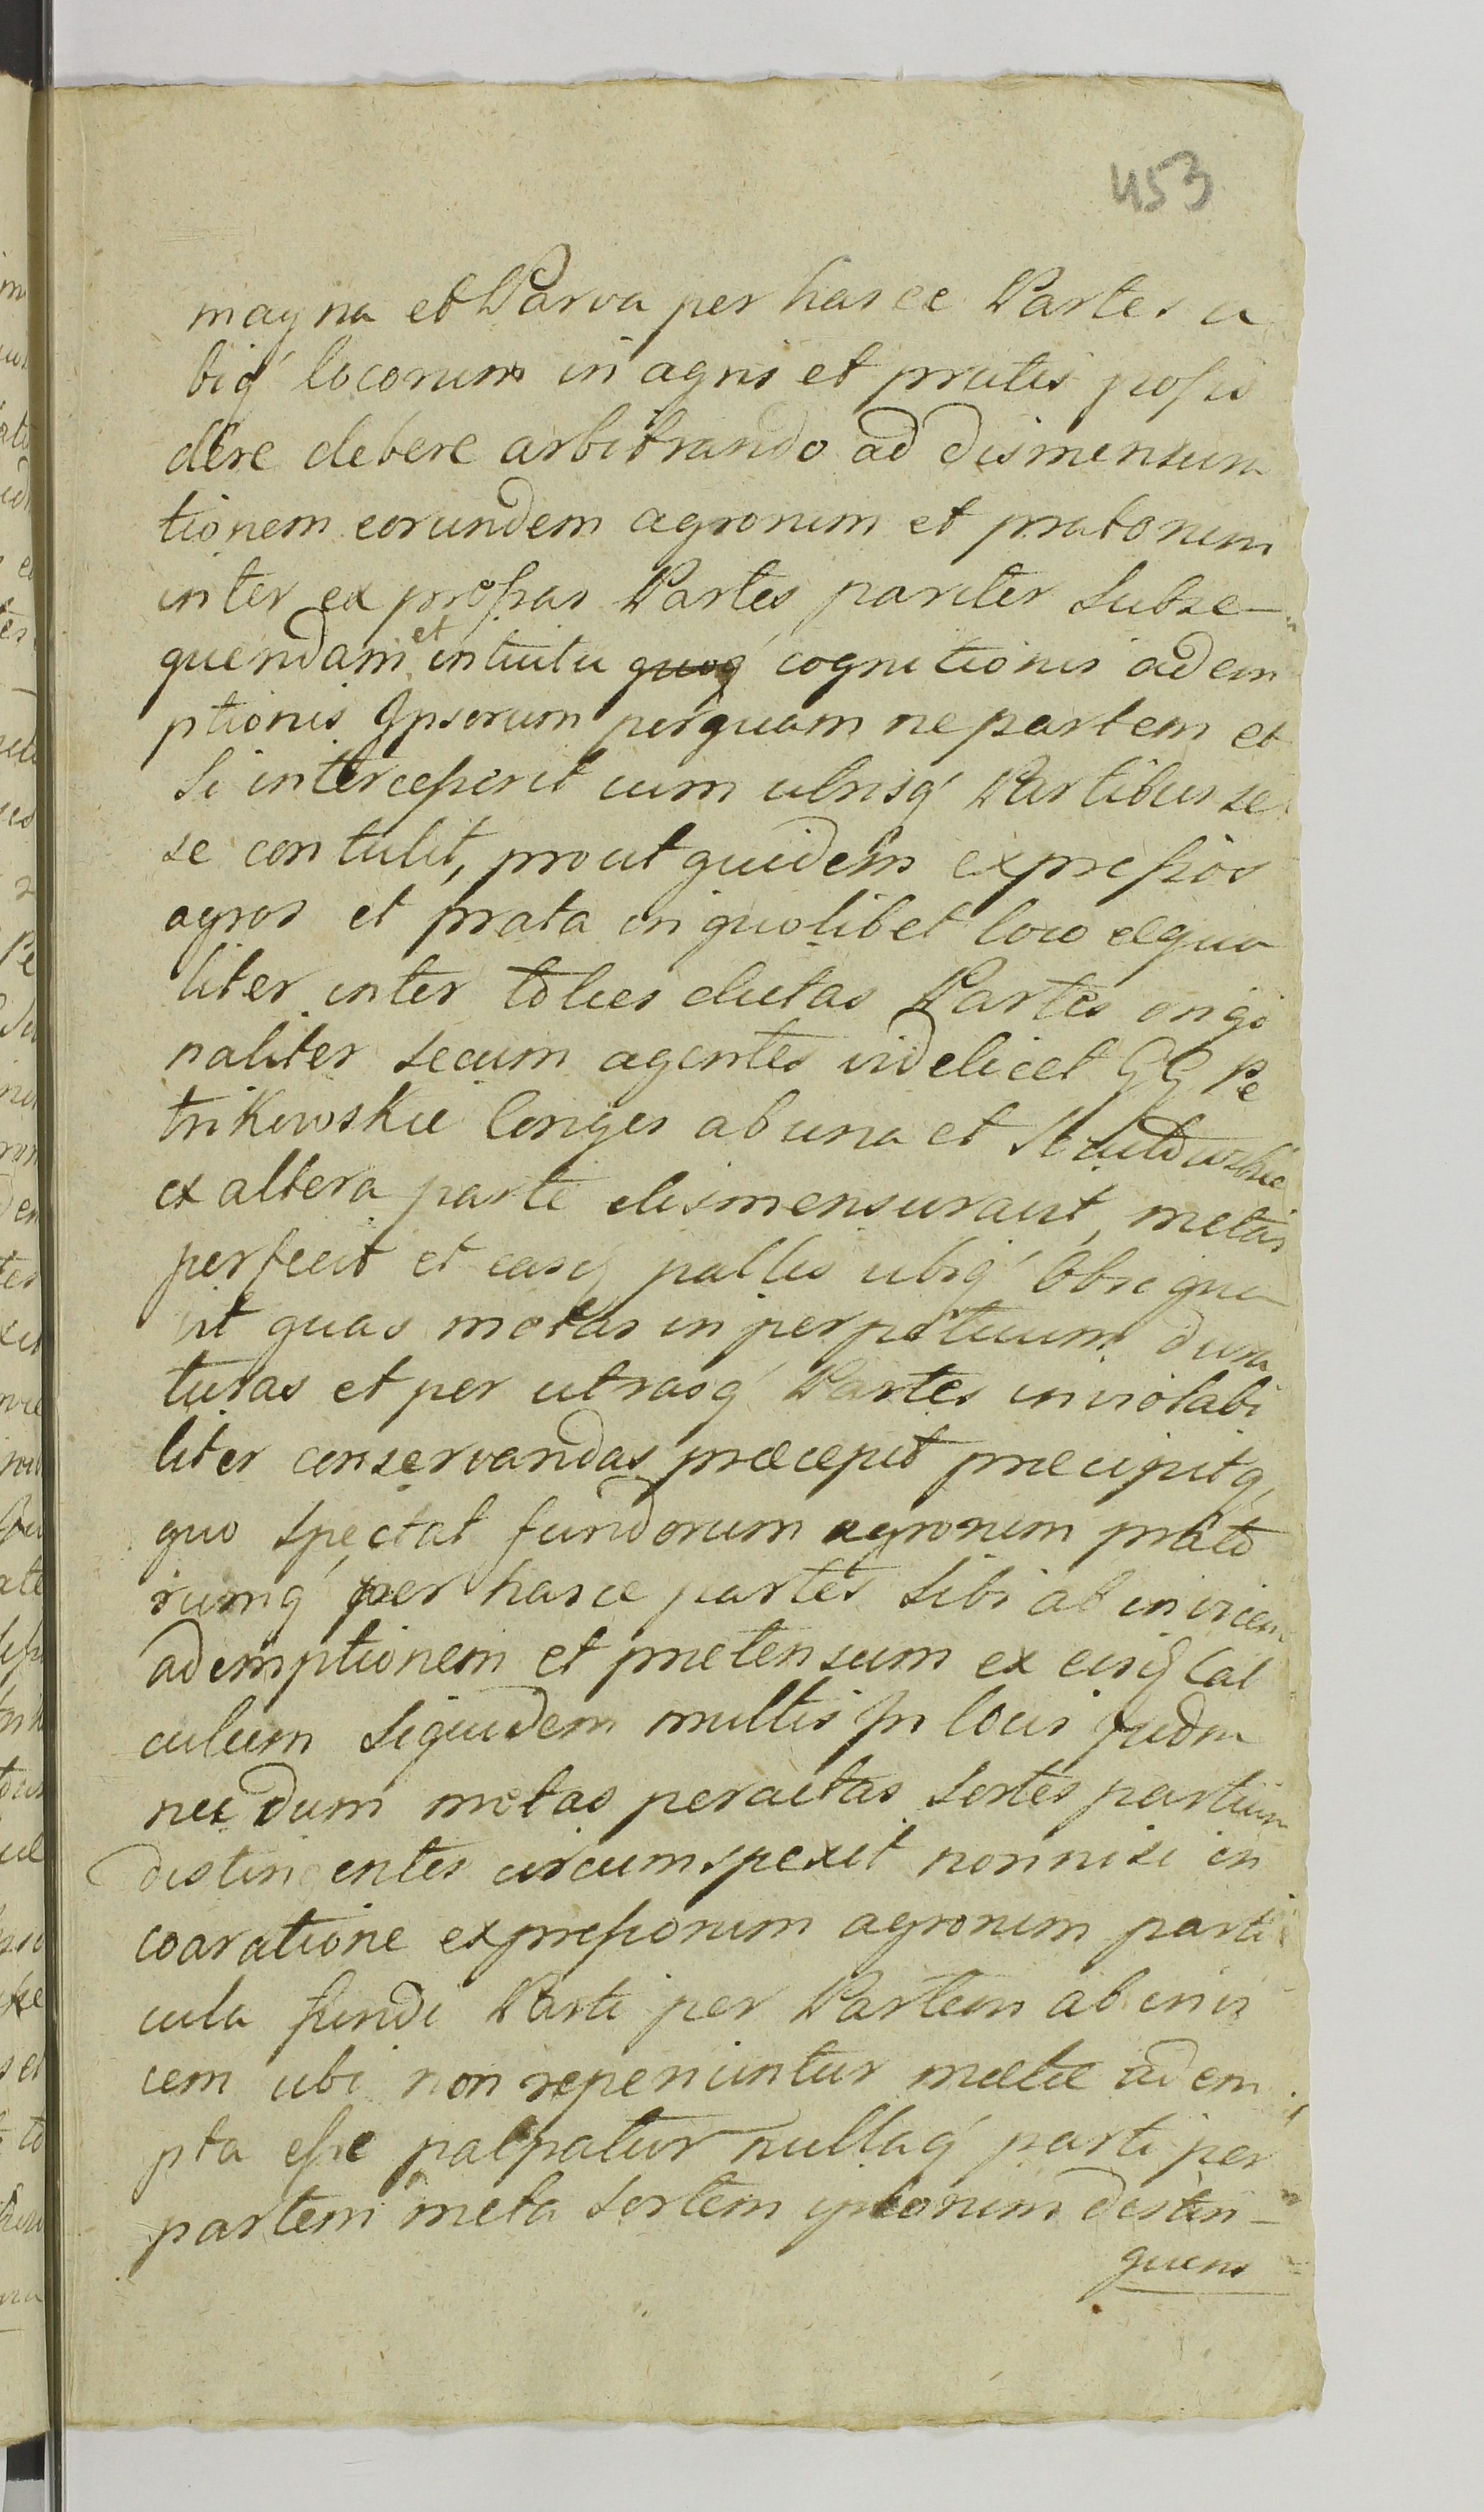 453
magna et Parva per hasce Partes u
biq' locorum in agris et pratis possi
dere debere arbitrando ad dismensura
tionem eorundem agrorum et pratorum
inter expressas Partes pariter subse-
quendam et intuitu quoq' cognitionis adem
ptionis Ipsorum per quam ne partem et
si intercesserit cum utrisq' Partibus se
se contulit, prout quidem expressos
agros et prata in quolibet loco aequa
liter inter toties dictas Partes origi
naliter secum agentes videlicet GG Pe
trikowskie Conges ab una et
ex altera parte dismensuravit, metas
perfecit et easq palles ubiq' Obsigna
vit quas metas in perpetuum dura
turas et per utrasq' Partes inviolabi
liter conservandas praecepit praecipitq
quo spectat fundorum agrorum prato
rumq' per hasce partes sibi ab invicem
ademptionem et praetensum ex eisq Cal
culum siquidem multis In locis
nec dum metas peractas sortes partium
distin entes circumspexit nonnisi in
coaratione expressorum agrorum parti
cula fundi Parti per Partem ab invi
cem ubi non reperiuntur metae adem
pta esse palpatur nullaq' parti per
partem meta sortem ipsorum distin-
guens